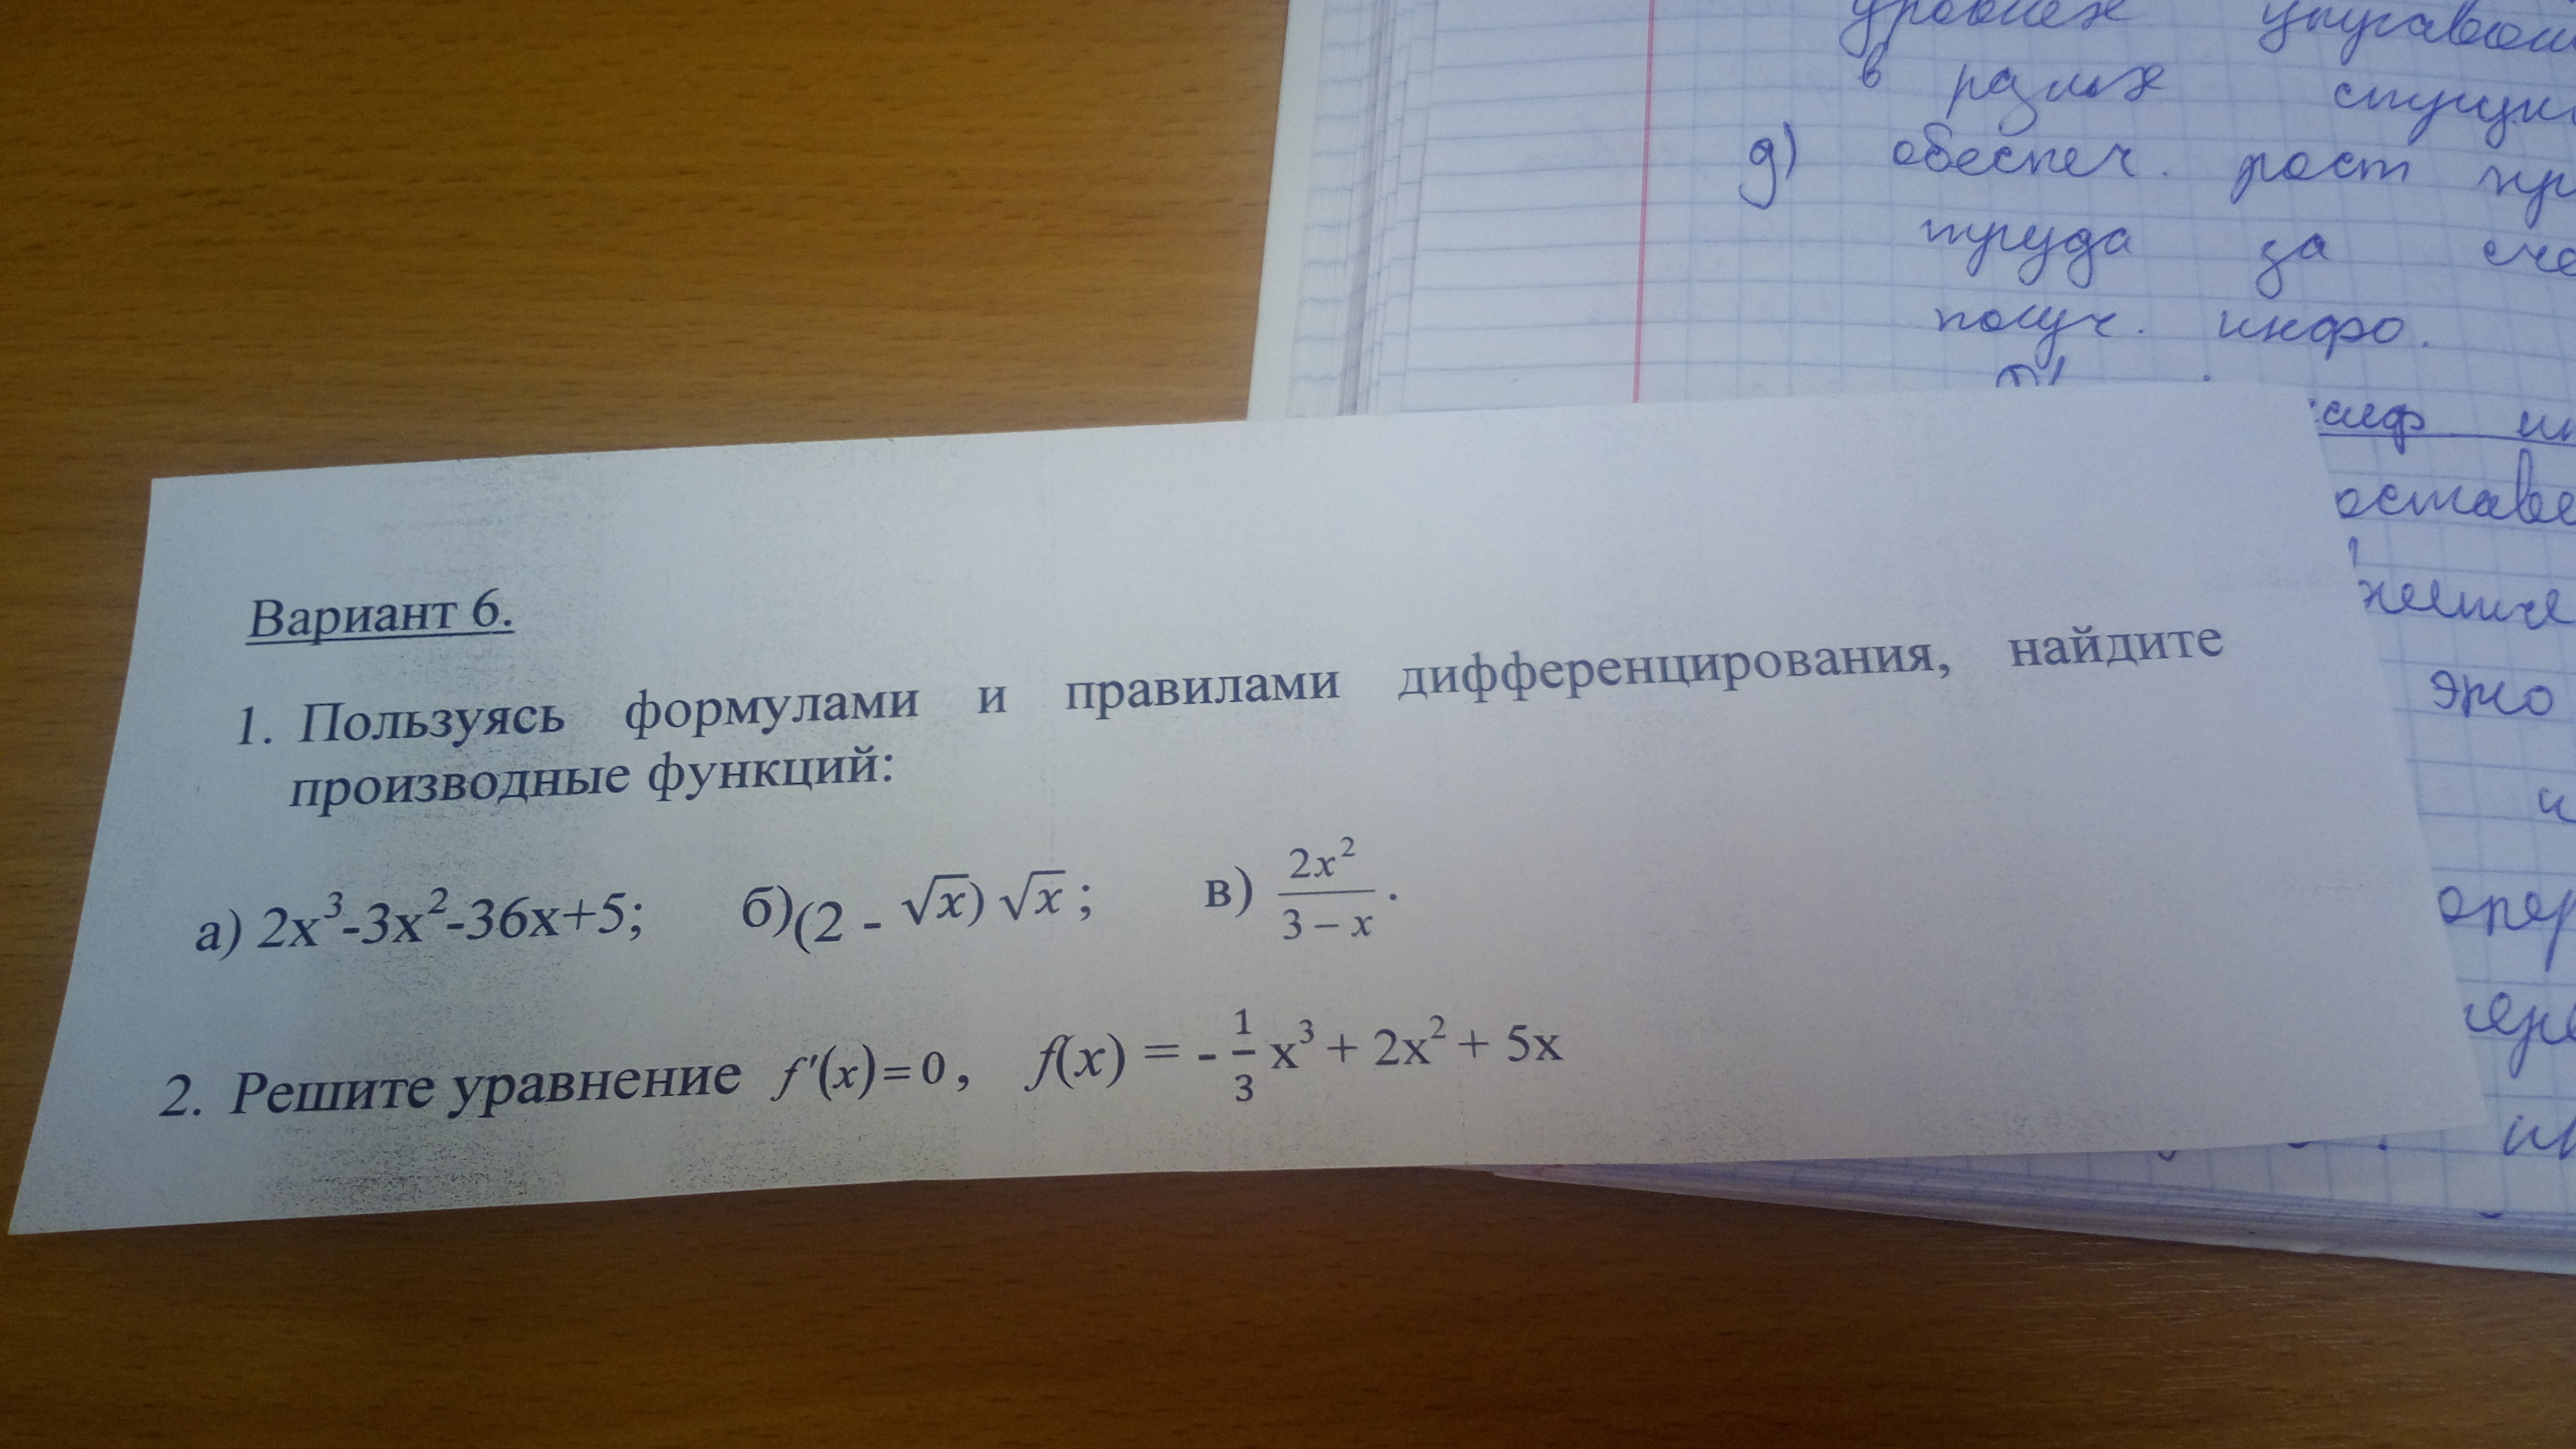 в разных
g) обеспеч. рост пр
труда за сче
получ. инфо.
оставе
это
и
опер
Вариант 6.
1. Пользуясь формулами и правилами дифференцирования, найдите
производные функций:
а) 2x³-3x²-36x+5; б)(2 - √x) √x ; в) 2x²/(3 – x) .
2. Решите уравнение f′(x)=0 , f(x) = - 1/3 x³ + 2x² + 5x